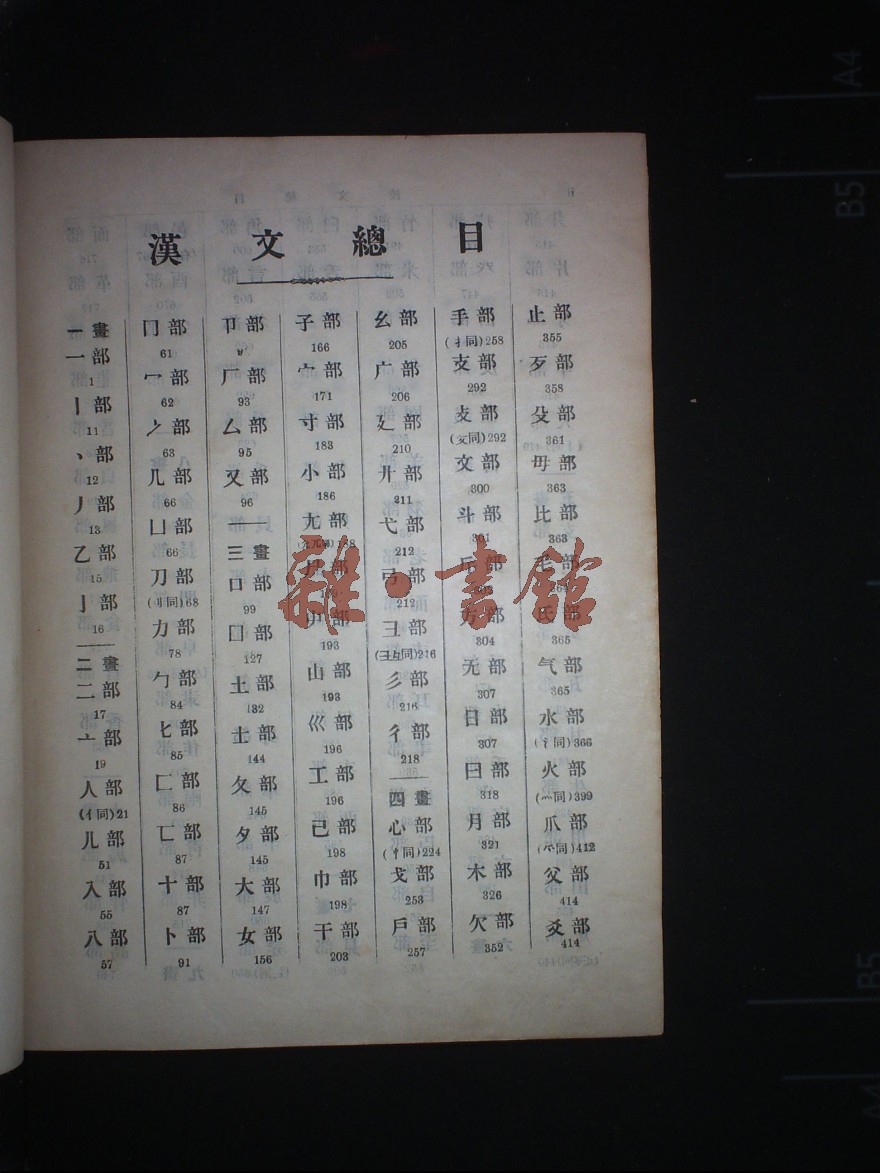 漢文總目
一畫
一部
1
丨部
11
丶部
12
丿部
13
乙部
15
亅部
16
二畫
二部
17
亠部
19
人部
(亻同)21
儿部
51
入部
55
八部
57
冂部
61
冖部
62
冫部
63
几部
66
凵部
66
刀部
(刂同)68
力部
78
勹部
84
匕部
85
匚部
86
匸部
87
十部
87
卜部
91
卩部
厂部
93
厶部
95
又部
96
三畫
口部
99
囗部
127
土部
132
士部
144
夂部
145
夕部
145
大部
147
女部
156
子部
166
宀部
171
寸部
183
小部
186
尢部
188
部
屮部
193
山部
193
巛部
196
工部
196
己部
198
巾部
198
干部
203
幺部
205
广部
206
廴部
210
廾部
211
弋部
212
弓部
212
彐部
(彑同)216
彡部
216
彳部
218
四畫
心部
(忄同)224
戈部
253
戶部
257
手部
(扌同)258
支部
292
攴部
(攵同)292
文部
300
斗部
301
斤部
303
方部
304
无部
307
日部
307
曰部
318
月部
321
木部
326
欠部
352
止部
355
歹部
358
殳部
361
毋部
363
比部
363
毛部
364
氏部
365
气部
365
水部
(氵同)366
火部
(灬同)399
爪部
(爫同)412
父部
414
爻部
414
雜·書館
A4
B5
B5
A4